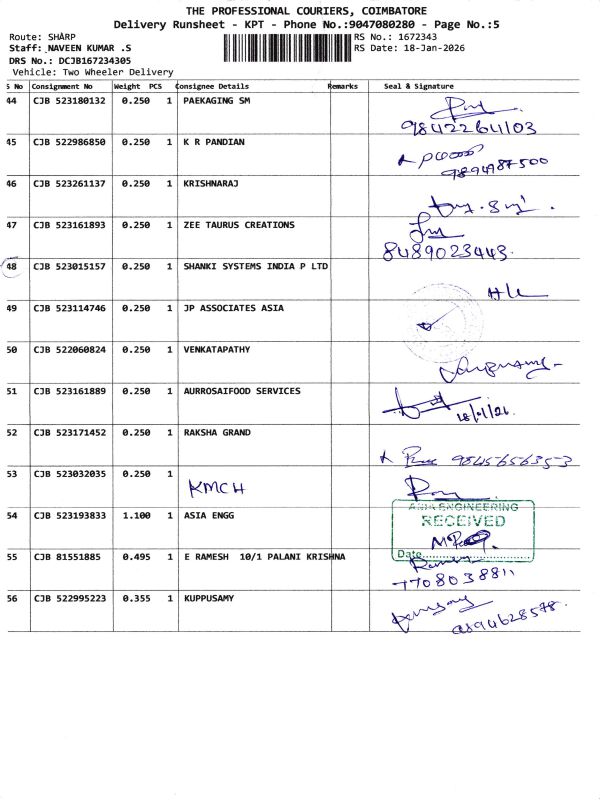 THE PROFESSIONAL COURIERS, COIMBATORE
Delivery Runsheet - KPT - Phone No.:9047080280 - Page No.:5
Route: SHARP
RS No.: 1672343
Staff: NAVEEN KUMAR .S
RS Date: 18-Jan-2026
DRS No.: DCJB167234305
Vehicle: Two Wheeler Delivery
S No Consignment No Weight PCS Consignee Details Remarks Seal & Signature
44 CJB 523180132 0.250 1 PAEKAGING SM
9842264103
45 CJB 522986850 0.250 1 K R PANDIAN
9894987500
46 CJB 523261137 0.250 1 KRISHNARAJ
47 CJB 523161893 0.250 1 ZEE TAURUS CREATIONS
8489023443
48 CJB 523015157 0.250 1 SHANKI SYSTEMS INDIA P LTD
49 CJB 523114746 0.250 1 JP ASSOCIATES ASIA
50 CJB 522060824 0.250 1 VENKATAPATHY
51 CJB 523161889 0.250 1 AURROSAIFOOD SERVICES
18/1/26
52 CJB 523171452 0.250 1 RAKSHA GRAND
9845656353
53 CJB 523032035 0.250 1
KMCH
54 CJB 523193833 1.100 1 ASIA ENGG
ASIA ENGINEERING
RECEIVED
Date
55 CJB 81551885 0.495 1 E RAMESH 10/1 PALANI KRISHNA
7708038811
56 CJB 522995223 0.355 1 KUPPUSAMY
9894628578